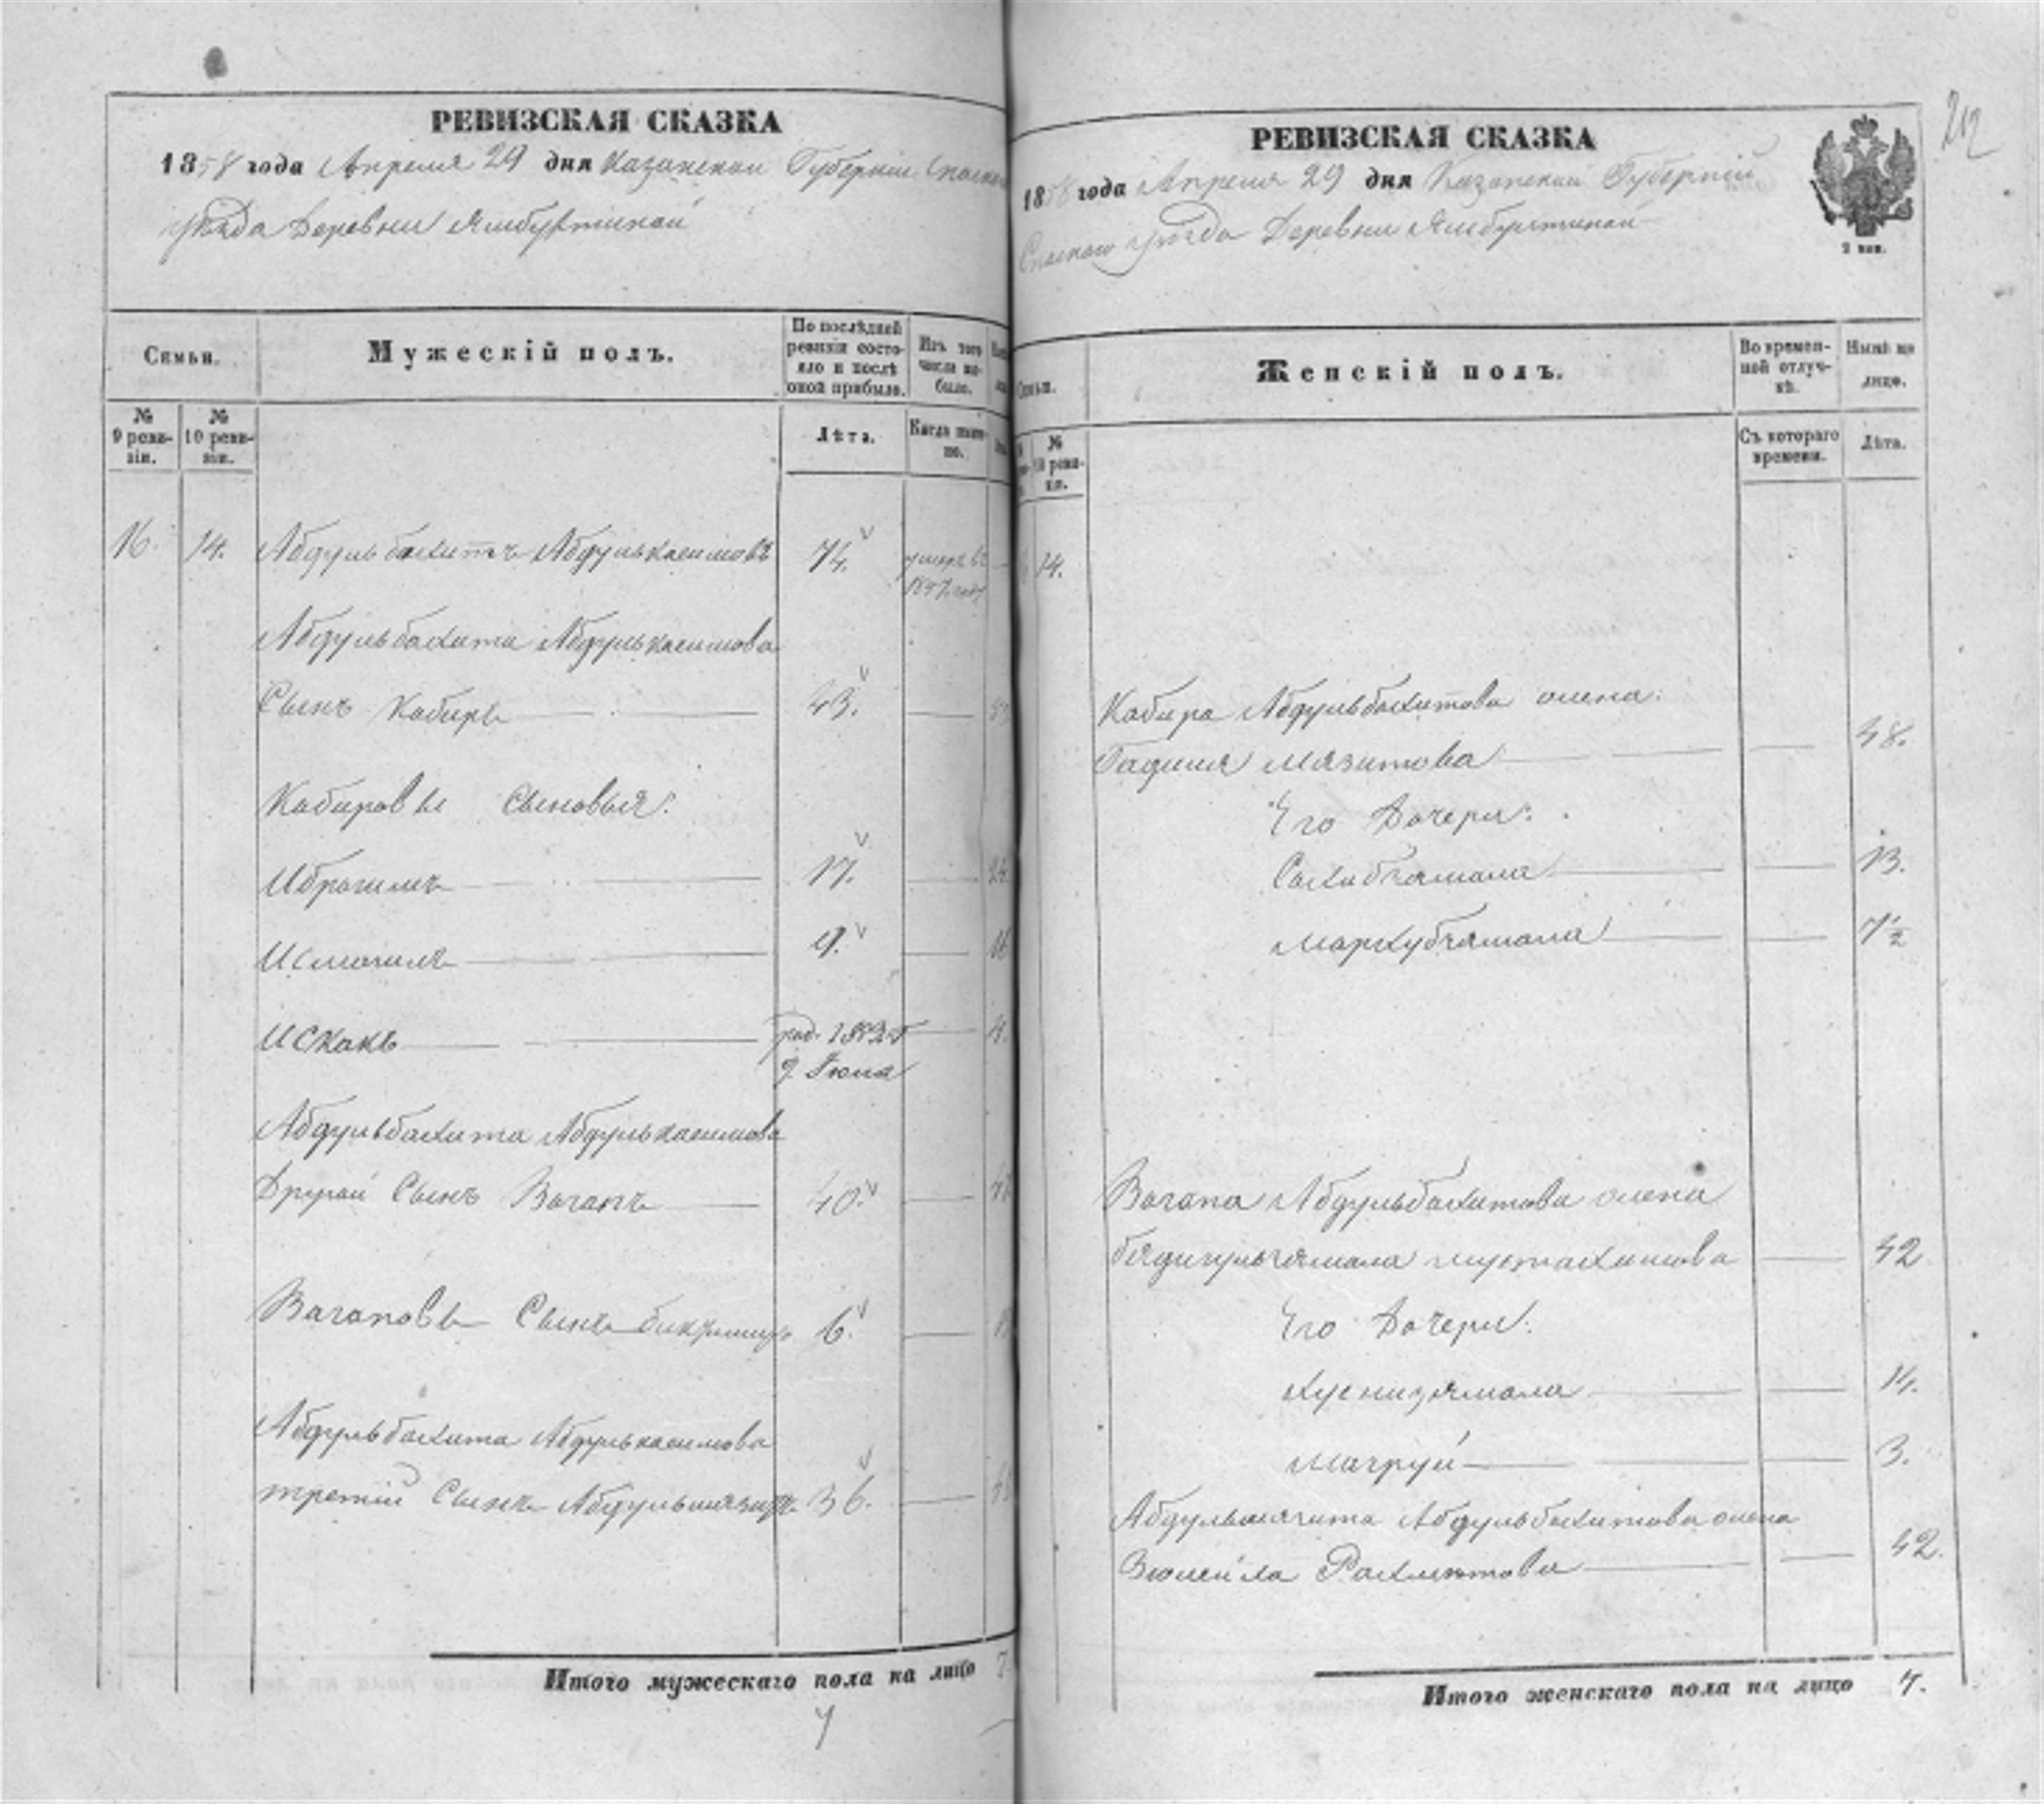 РЕВИЗСКАЯ СКАЗКА
1858 года Апреля 29 дня Казанской Губернии Спаскаго
уѣзда Деревни Ямбухтиной
Семьи.
Мужескій полъ.
По послѣдней ревизіи состояло и послѣ оной прибыло.
Изъ того числа выбыло.
№ 9 ревизіи.
№ 10 ревизіи.
Лѣта.
Когда именно.
16. 14. Абдульбахитъ Абдулькасимовъ 74. умеръ въ 1857 году
Абдульбахита Абдулькасимова
Сынъ Кабиръ 43.
Кабировы Сыновья:
Ибрагимъ 17.
Исмагилъ 9.
Искакъ род. 1852 г.
9 Іюня
Абдульбахита Абдулькасимова
Другой Сынъ Вагапъ 40.
Вагаповъ Сынъ 6.
Абдульбахита Абдулькасимова
третій Сынъ 36.
Итого мужескаго пола на лицо 7
7
РЕВИЗСКАЯ СКАЗКА
212
1858 года Апреля 29 дня Казанской Губерніи
Спаскаго уѣзда Деревни Ямбухтиной
2 коп.
Семьи.
Женскій полъ.
Во временной отлучкѣ.
Нынѣ на лицо.
№ 10 ревизіи.
Съ котораго времени.
Лѣта.
14.
Кабира Абдульбахитова жена:
Мязитова 48.
Его Дочери:
Сахибзямала 13.
Мархубзямала 7½
Вагапа Абдульбахитова жена
Бядигульзямала Мустахимова 42
Его Дочери:
Хуснизямала 14.
Магруй 3.
Абдульмязита Абдульбахитова жена
Рахметова 42.
Итого женскаго пола на лицо 7.